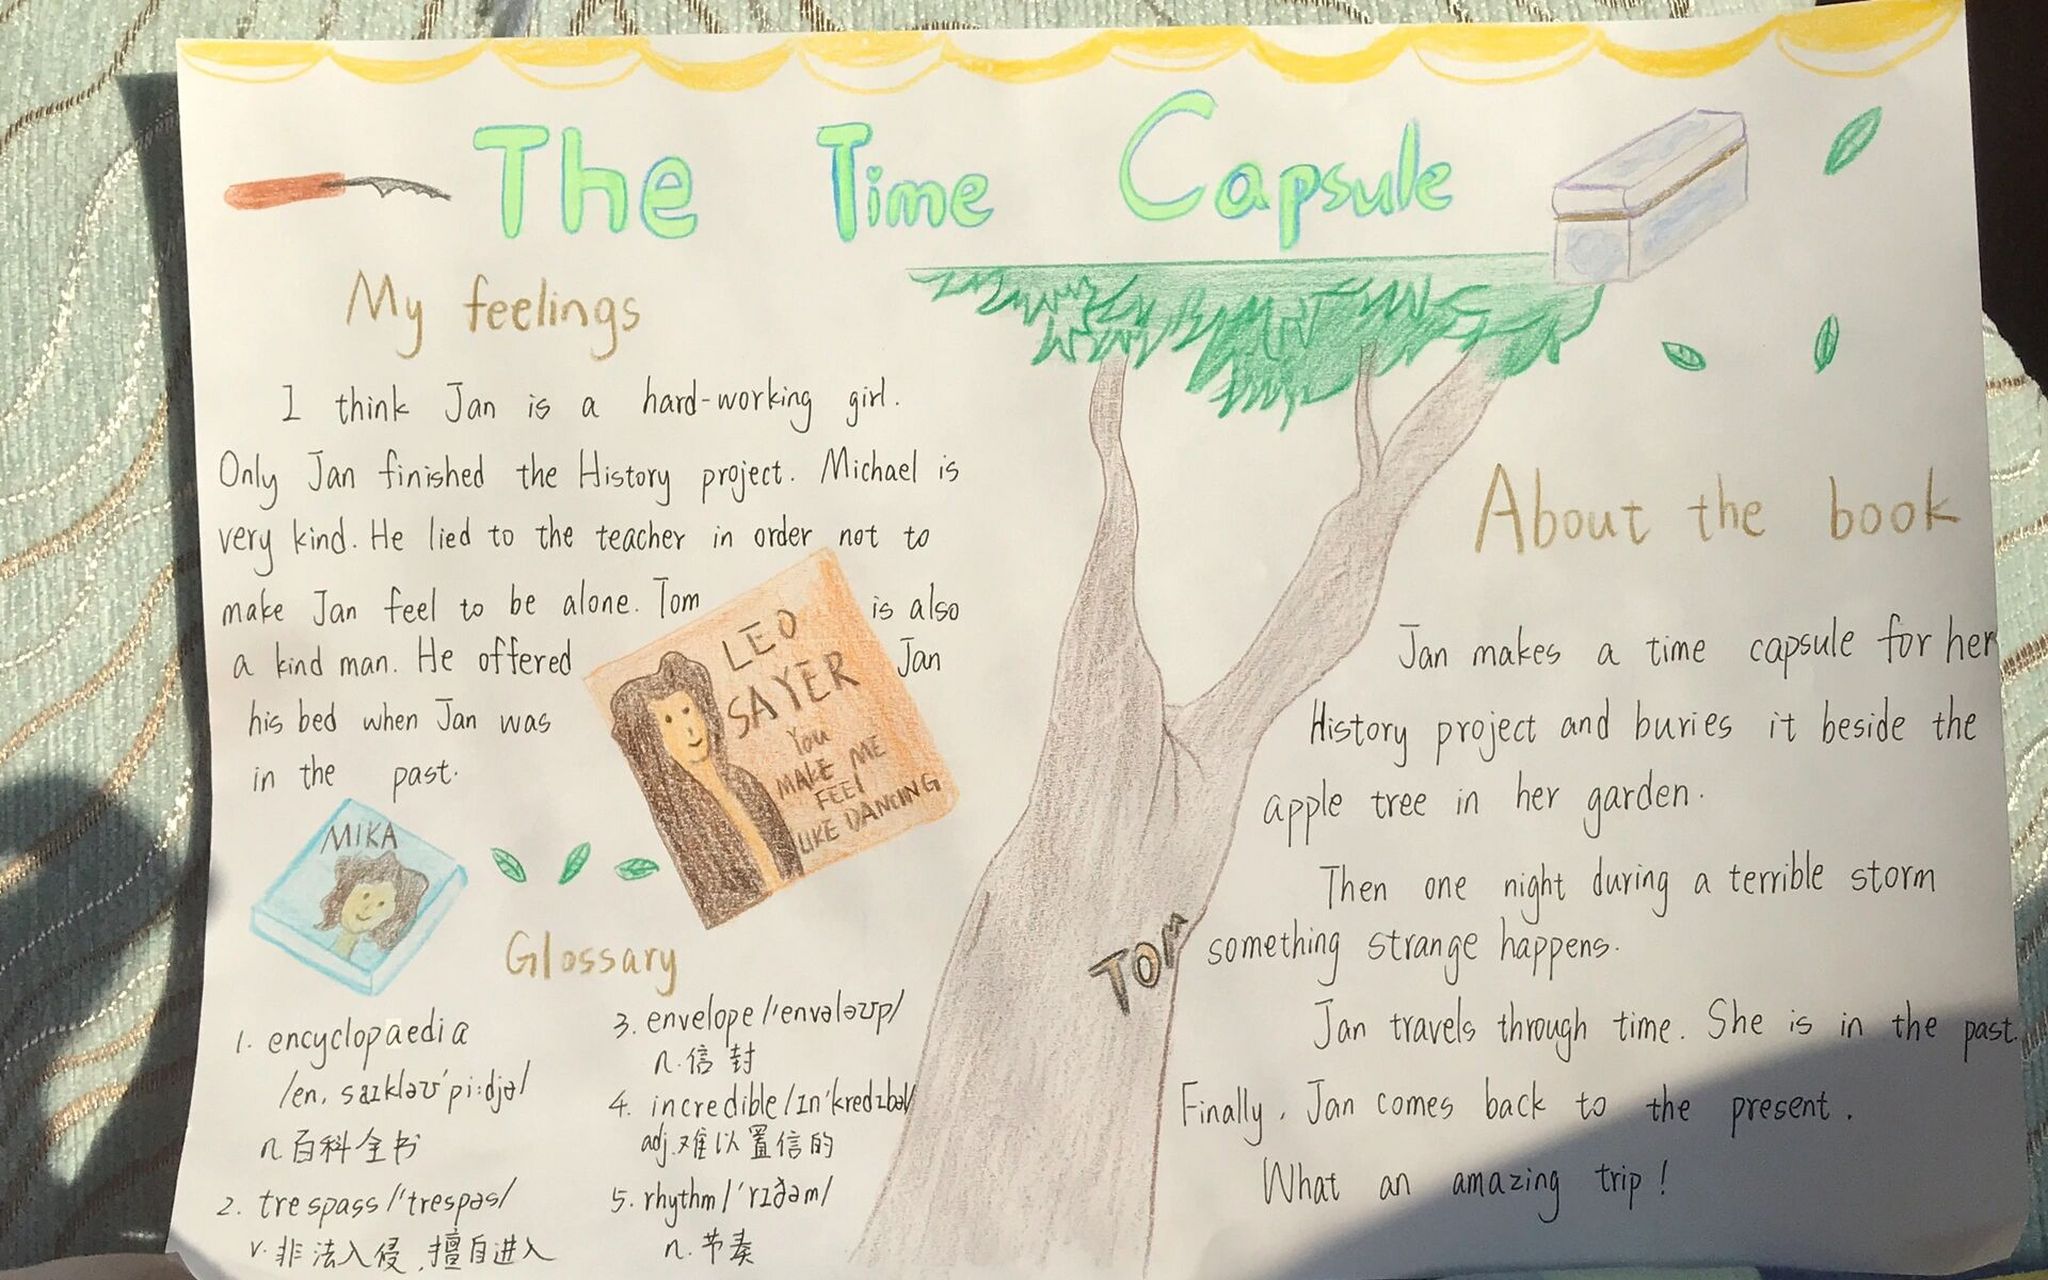 The Time Capsule
My feelings
I think Jan is a hard-working girl.
Only Jan finished the History project. Michael is
very kind. He lied to the teacher in order not to
make Jan feel to be alone. Tom is also
a kind man. He offered Jan
his bed when Jan was
in the past.
LEO
SAYER
You
MAKE ME
FEEl
LIKE DANCING
MIKA
Glossary
1. encyclopaedia
/en, saɪkləʊ'pi:djə/
n.百科全书
2. trespass/'trespəs/
v.非法入侵,擅自进入
3. envelope/'envələʊp/
n.信封
4. incredible/ɪn'kredɪbəl/
adj.难以置信的
5. rhythm/'rɪðəm/
n.节奏
TOM
About the book
Jan makes a time capsule for her
History project and buries it beside the
apple tree in her garden.
Then one night during a terrible storm
something strange happens.
Jan travels through time. She is in the past.
Finally, Jan comes back to the present.
What an amazing trip!